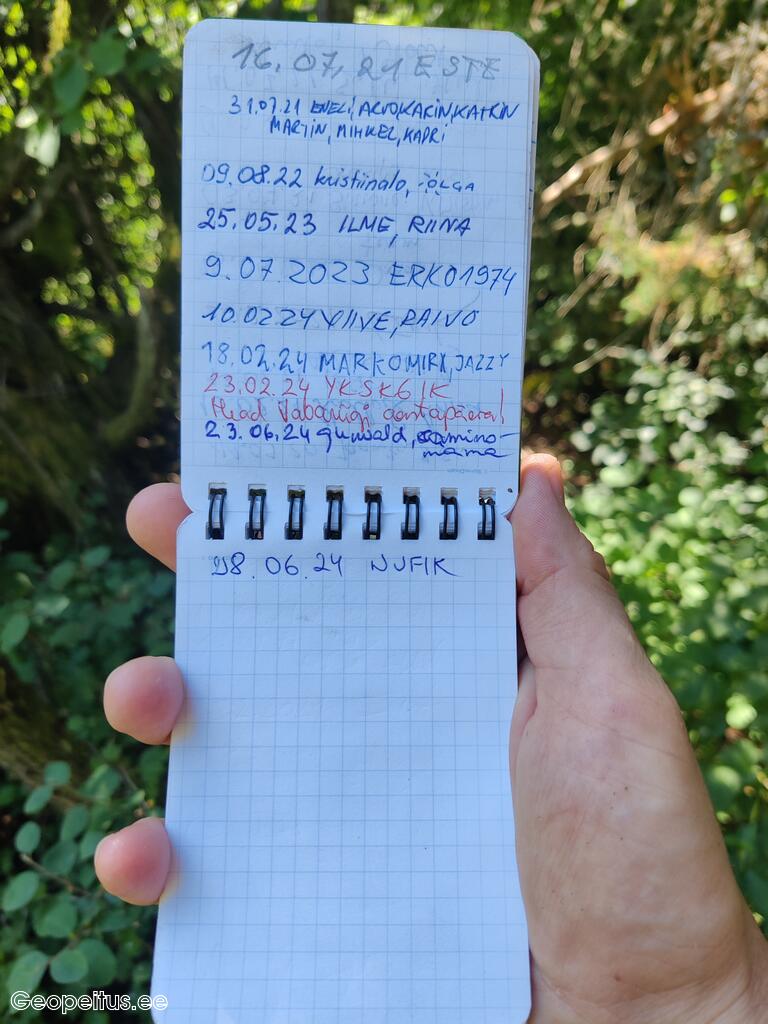 16.07.21 ESTE
31.07.21 ENELI, ARVO, KARIN, KATRIN
MARTIN, MIHKEL, KADRI
09.08.22 kristiinalo, OLGA
25.05.23 ILME, RIINA
9.07.2023 ERKO1974
10.02.24 VIIVE, RAIVO
18.02.24 MARKOMIRX, JAZZY
23.02.24 YKSK6IK
Head Vabariigi aastapäeva!
23.06.24 gunvald, camino-
mama
28.06.24 NUFIK
Geopeitus.ee